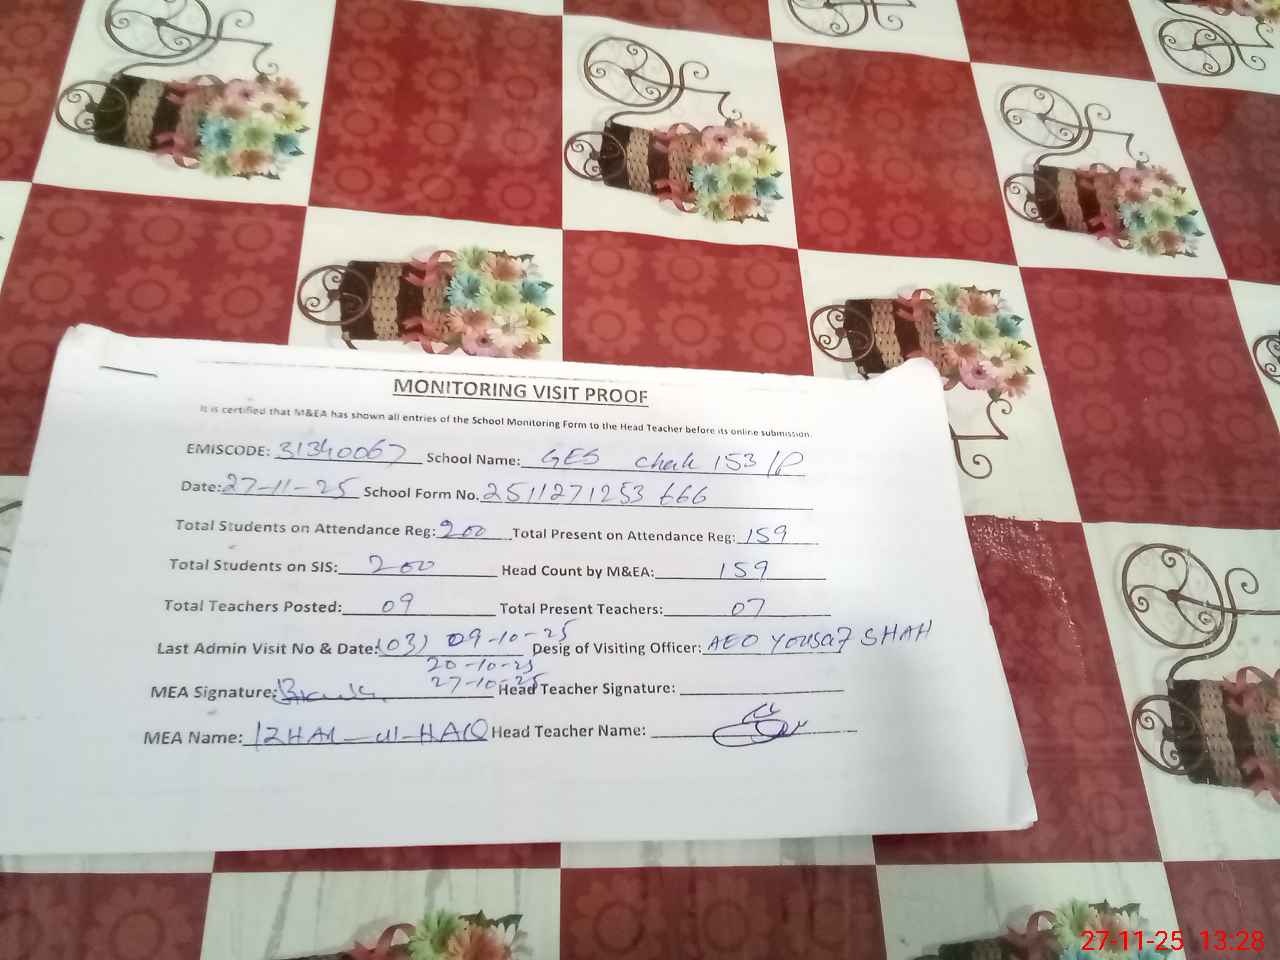 MONITORING VISIT PROOF
It is certified that M&EA has shown all entries of the School Monitoring Form to the Head Teacher before its online submission.
EMISCODE: 31340067 School Name: GES Chak 153/P
Date: 27-11-25 School Form No. 2511271253666
Total Students on Attendance Reg: 200 Total Present on Attendance Reg: 159
Total Students on SIS: 200 Head Count by M&EA: 159
Total Teachers Posted: 09 Total Present Teachers: 07
Last Admin Visit No & Date: (03) 09-10-25 Desig of Visiting Officer: AEO Yousaf SHAH
20-10-25
27-10-25
MEA Signature: Head Teacher Signature:
MEA Name: IZHAR-ul-HAQ Head Teacher Name:
27-11-25 13:28